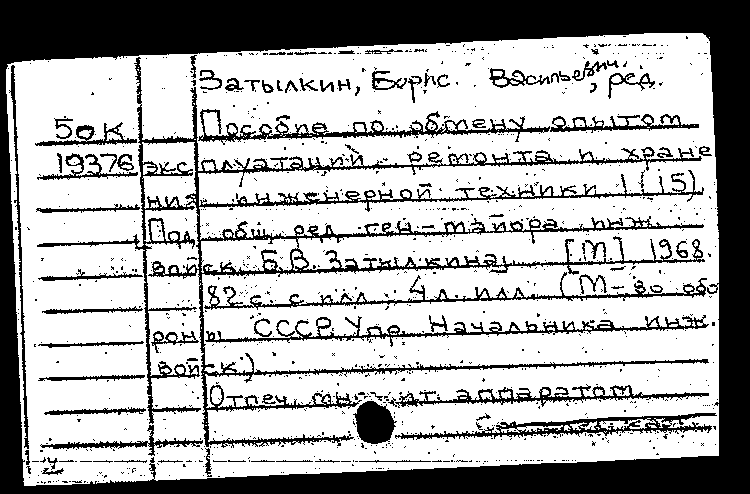 Затылкин, Борис Васильевич, ред.
50К Пособие по обмену опытом
19376 эксплуатаций, ремонта и хране
ния инженерной техники 1(15)
Под общ. ред. ген-майора инж.
войск Б.В. Затылкина, [М] 1968.
82 с. с илл., 4 л. илл. (М-во обо
роны СССР. Упр. Начальника инж.
войск).
Отпеч. аппаратом